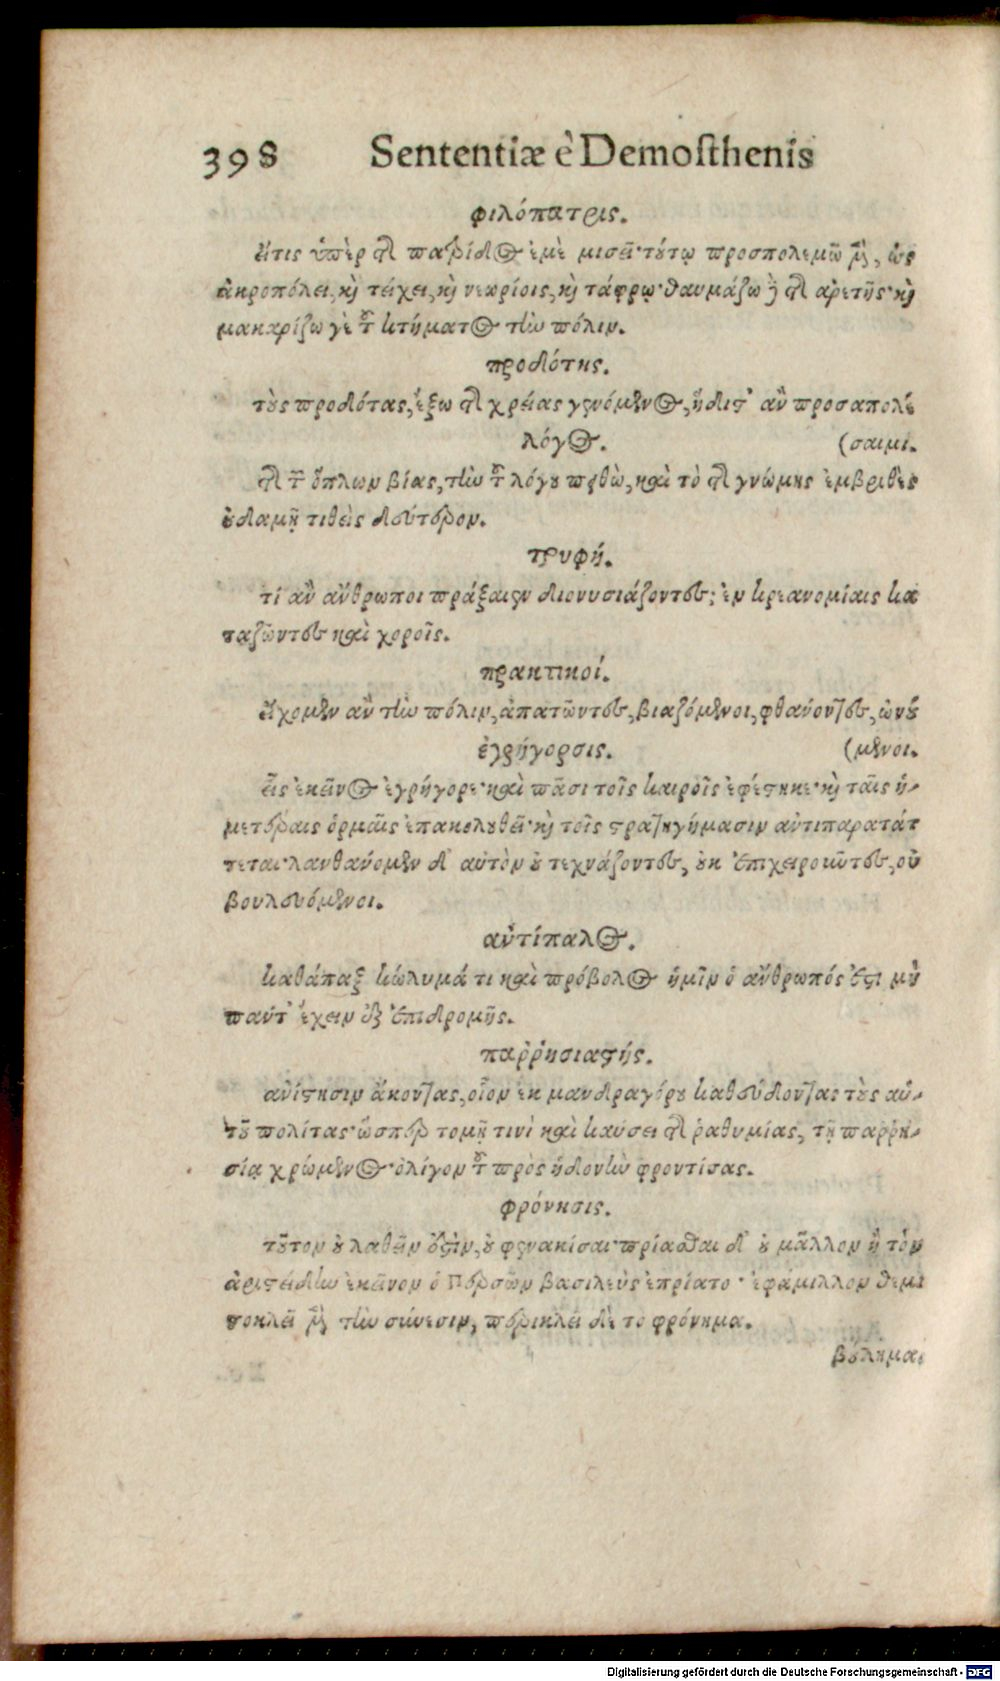 398 Sententiæ è Demosthenis
φιλόπατρις.
εἴτις ὑπὲρ τῆς πατρίδος ἐμὲ μισεῖ· τούτῳ προσπολεμῶ μὲν, ὡς
ἀκροπόλει, καὶ τείχει, καὶ νεωρίοις, καὶ τάφρῳ· θαυμάζω δὲ τῆς ἀρετῆς· καὶ
μακαρίζω γὲ τοῦ κτήματος τὴν πόλιν.
προδότης.
τοὺς προδότας, ἔξω τῆς χρείας γενόμενος, ἥδιστ' ἂν προσαπολέ
λόγος. (σαιμι.
τῆς τῶν ὅπλων βίας, τὴν τοῦ λόγου πειθὼ, καὶ τὸ τῆς γνώμης ἐμβριθὲς
οὐδαμῇ τιθεὶς δεύτερον.
τρυφή.
τί ἂν ἄνθρωποι πράξαιεν διονυσιάζοντες; ἐν κρεανομίαις κα
ταζῶντες καὶ χοροῖς.
πρακτικοί.
εἴχομεν ἂν τὴν πόλιν, ἀπατῶντες, βιαζόμενοι, φθάνοντες, ὠνού
ἐγρήγορσις. (μενοι.
εἷς ἐκεῖνος ἐγρήγορε· καὶ πᾶσι τοῖς καιροῖς ἐφέστηκε· καὶ ταῖς ἡ-
μετέραις ὁρμαῖς ἐπακολουθεῖ· καὶ τοῖς στρατηγήμασιν ἀντιπαρατάτ
τεται· λανθάνομεν δ' αὐτὸν οὐ τεχνάζοντες, οὐκ ἐπιχειροῦντες, οὐ
βουλευόμενοι.
ἀντίπαλος.
καθάπαξ κώλυμά τι καὶ πρόβολος ἡμῖν ὁ ἄνθρωπός ἐστι μὴ
πάντ' ἔχειν ἐξ ἐπιδρομῆς.
παῤῥησιαστής.
ἀνίστησιν ἄκοντας, οἷον ἐκ μανδραγόρου καθεύδοντας τοὺς αὑ-
τοῦ πολίτας· ὥσπερ τομῇ τινὶ καὶ καύσει τῆς ῥαθυμίας, τῇ παῤῥη-
σίᾳ χρώμενος· ὀλίγον τοῦ πρὸς ἡδονὴν φροντίσας.
φρόνησις.
τοῦτον οὐ λαθεῖν ἔστιν, οὐ φενακίσαι· πρίασθαι δ' οὐ μᾶλλον ἢ τὸν
ἀριστείδην ἐκεῖνον ὁ Περσῶν βασιλεὺς ἐπρίατο· ἐφάμιλλον θεμι
στοκλεῖ μὲν τὴν σύνεσιν, περικλεῖ δὲ το φρόνημα.
βούλημαι
Digitalisierung gefördert durch die Deutsche Forschungsgemeinschaft - DFG